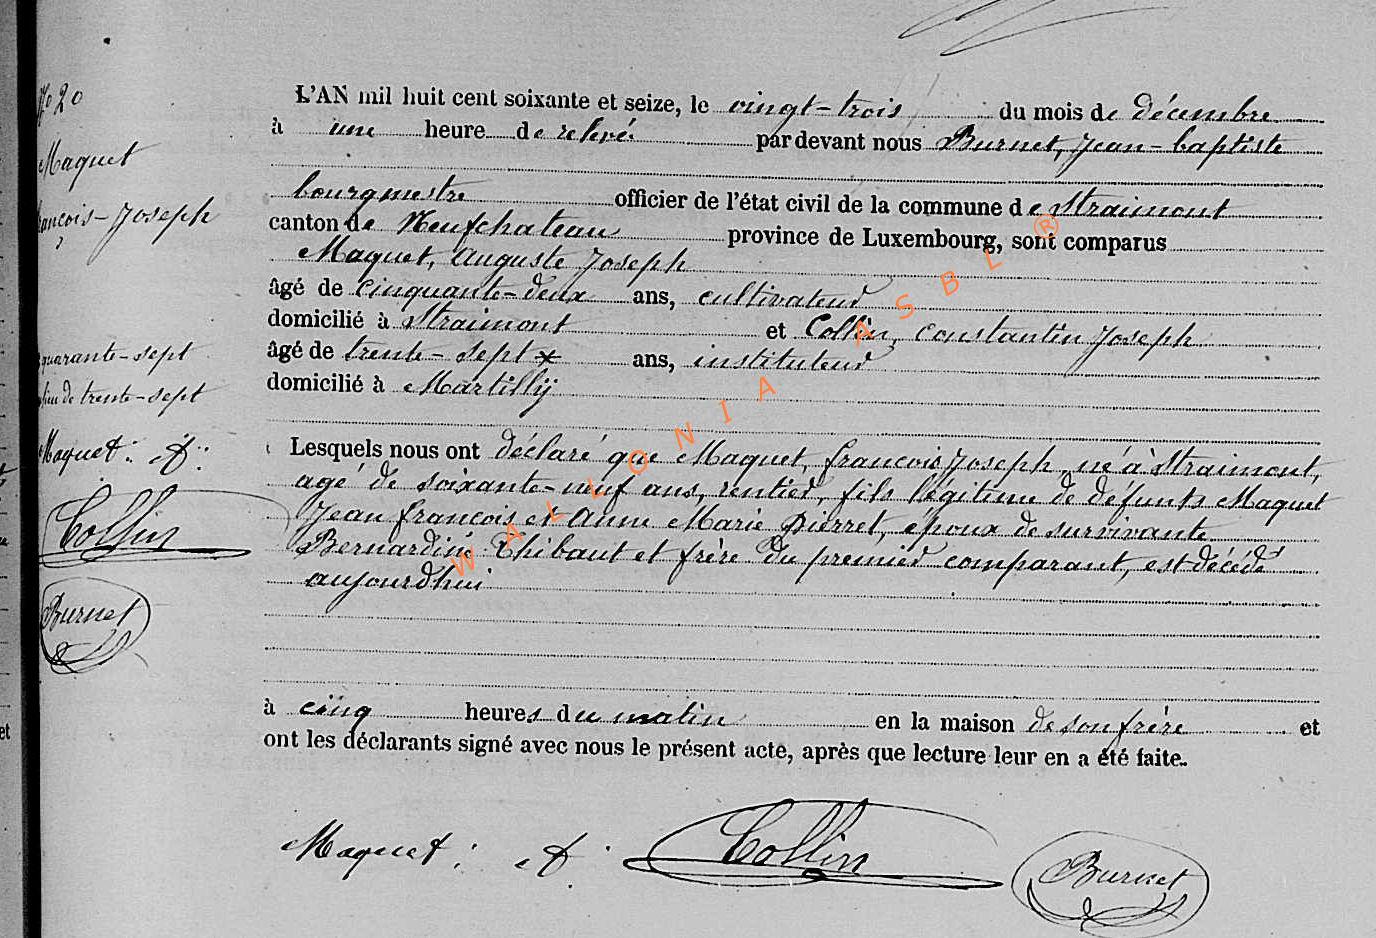 N° 20
Maquet
françois-Joseph
quarante-sept
lieu de trente-sept
Maquet: A:
Collin
Burnet
L'AN mil huit cent soixante et seize, le vingt-trois du mois de décembre
à une heure de relevé par devant nous Burnet, Jean-baptiste
bourgmestre officier de l'état civil de la commune de Straimont
canton de Neufchateau province de Luxembourg, sont comparus
Maquet, Auguste Joseph
âgé de cinquante-deux ans, cultivateur
domicilié à Straimont et Collin, Constantin Joseph
âgé de trente-sept x ans, instituteur
domicilié à Martilly
Lesquels nous ont déclaré que Maquet, françois Joseph, né à Straimont,
agé de soixante-neuf ans, rentier, fils légitime de défunts Maquet
Jean françois et Anne Marie Pierret, époux de survivante
Bernardine Thibaut et frère du premier comparant, est décédé
aujourdhui
à cinq heures du matin en la maison de son frère et
ont les déclarants signé avec nous le présent acte, après que lecture leur en a été faite.
Maquet: A:
Collin
Burnet
WALLONIA ASBL ®
et